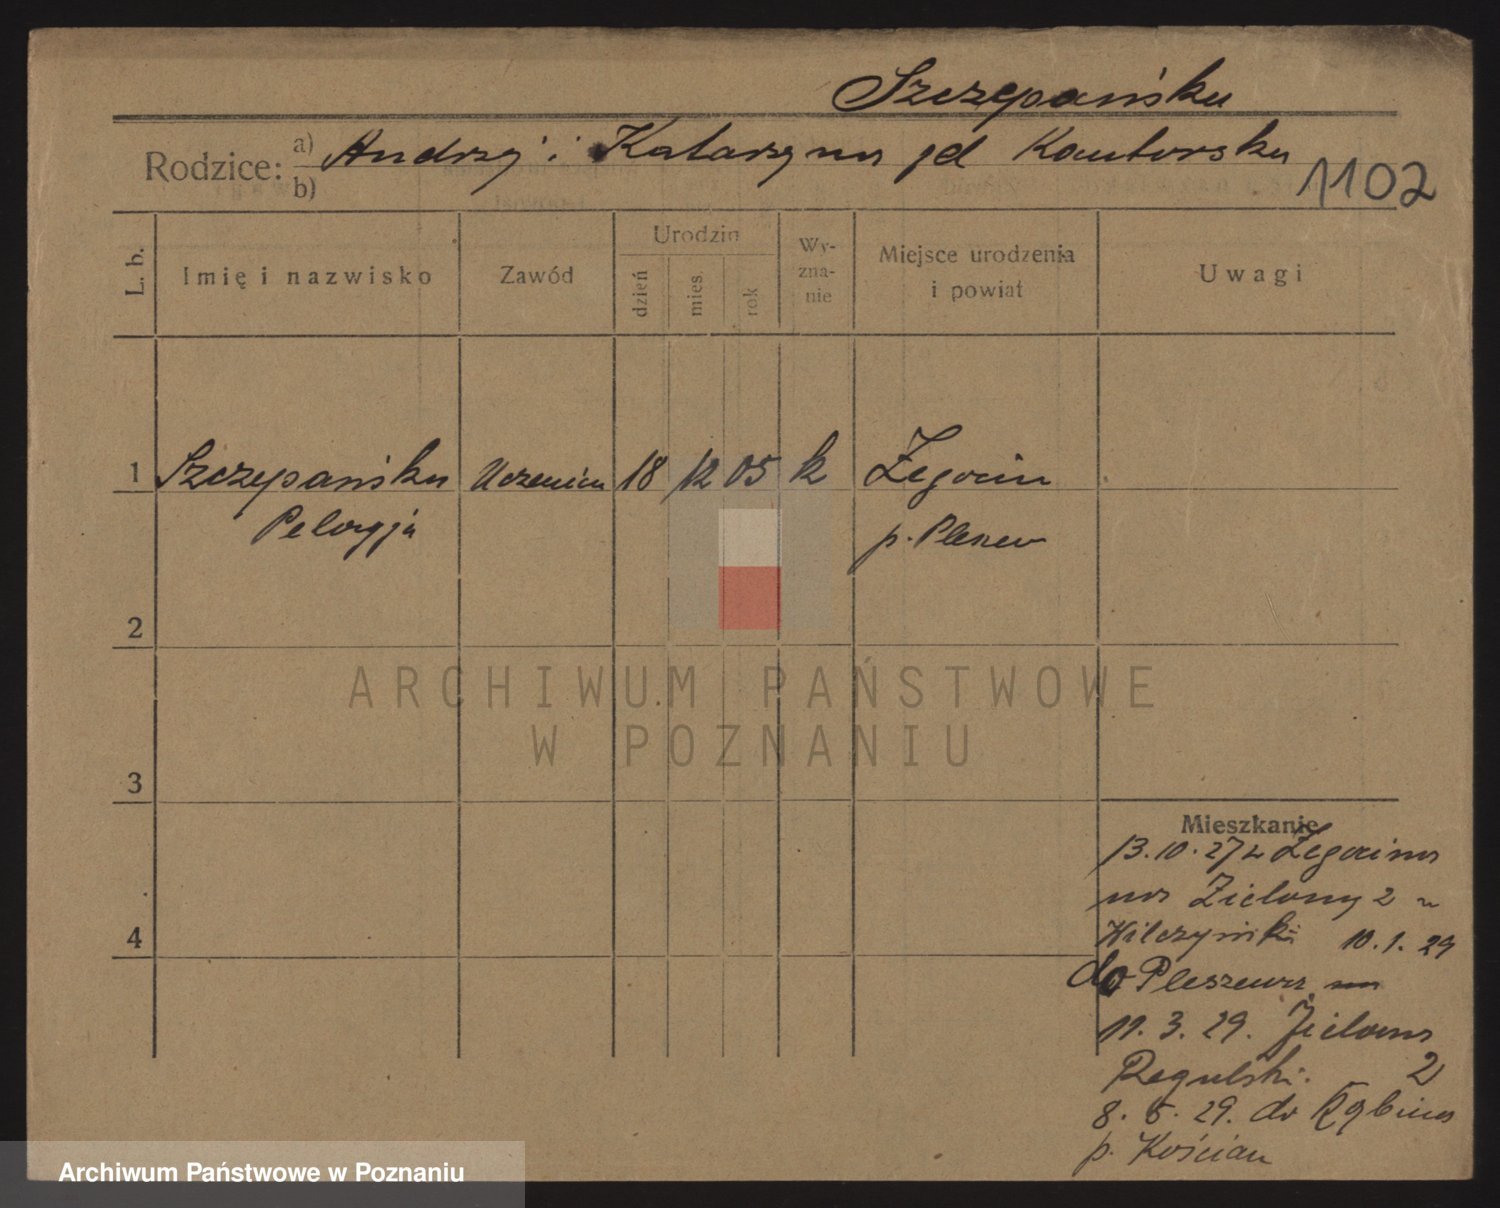 Szczepańska
Rodzice: a) Andrzej i Katarzyna Kantorska
b)
1102
L. b. Imię i nazwisko Zawód Urodzin dzień mies. rok Wyznanie Miejsce urodzenia i powiat Uwagi
1 Szczepańska Uczenica 18 12 05 k Żegocin
Pelagja p. Pleszew
2
ARCHIWUM PAŃSTWOWE
W POZNANIU
3
Mieszkanie
13.10.27 z Żegocina
na Zieloną 2 u
Wilczyński 10.1.29
4
do Pleszewa
11.3.29. Zielona
Regulski. 2
8.5.29. do
p. Kościan
Archiwum Państwowe w Poznaniu